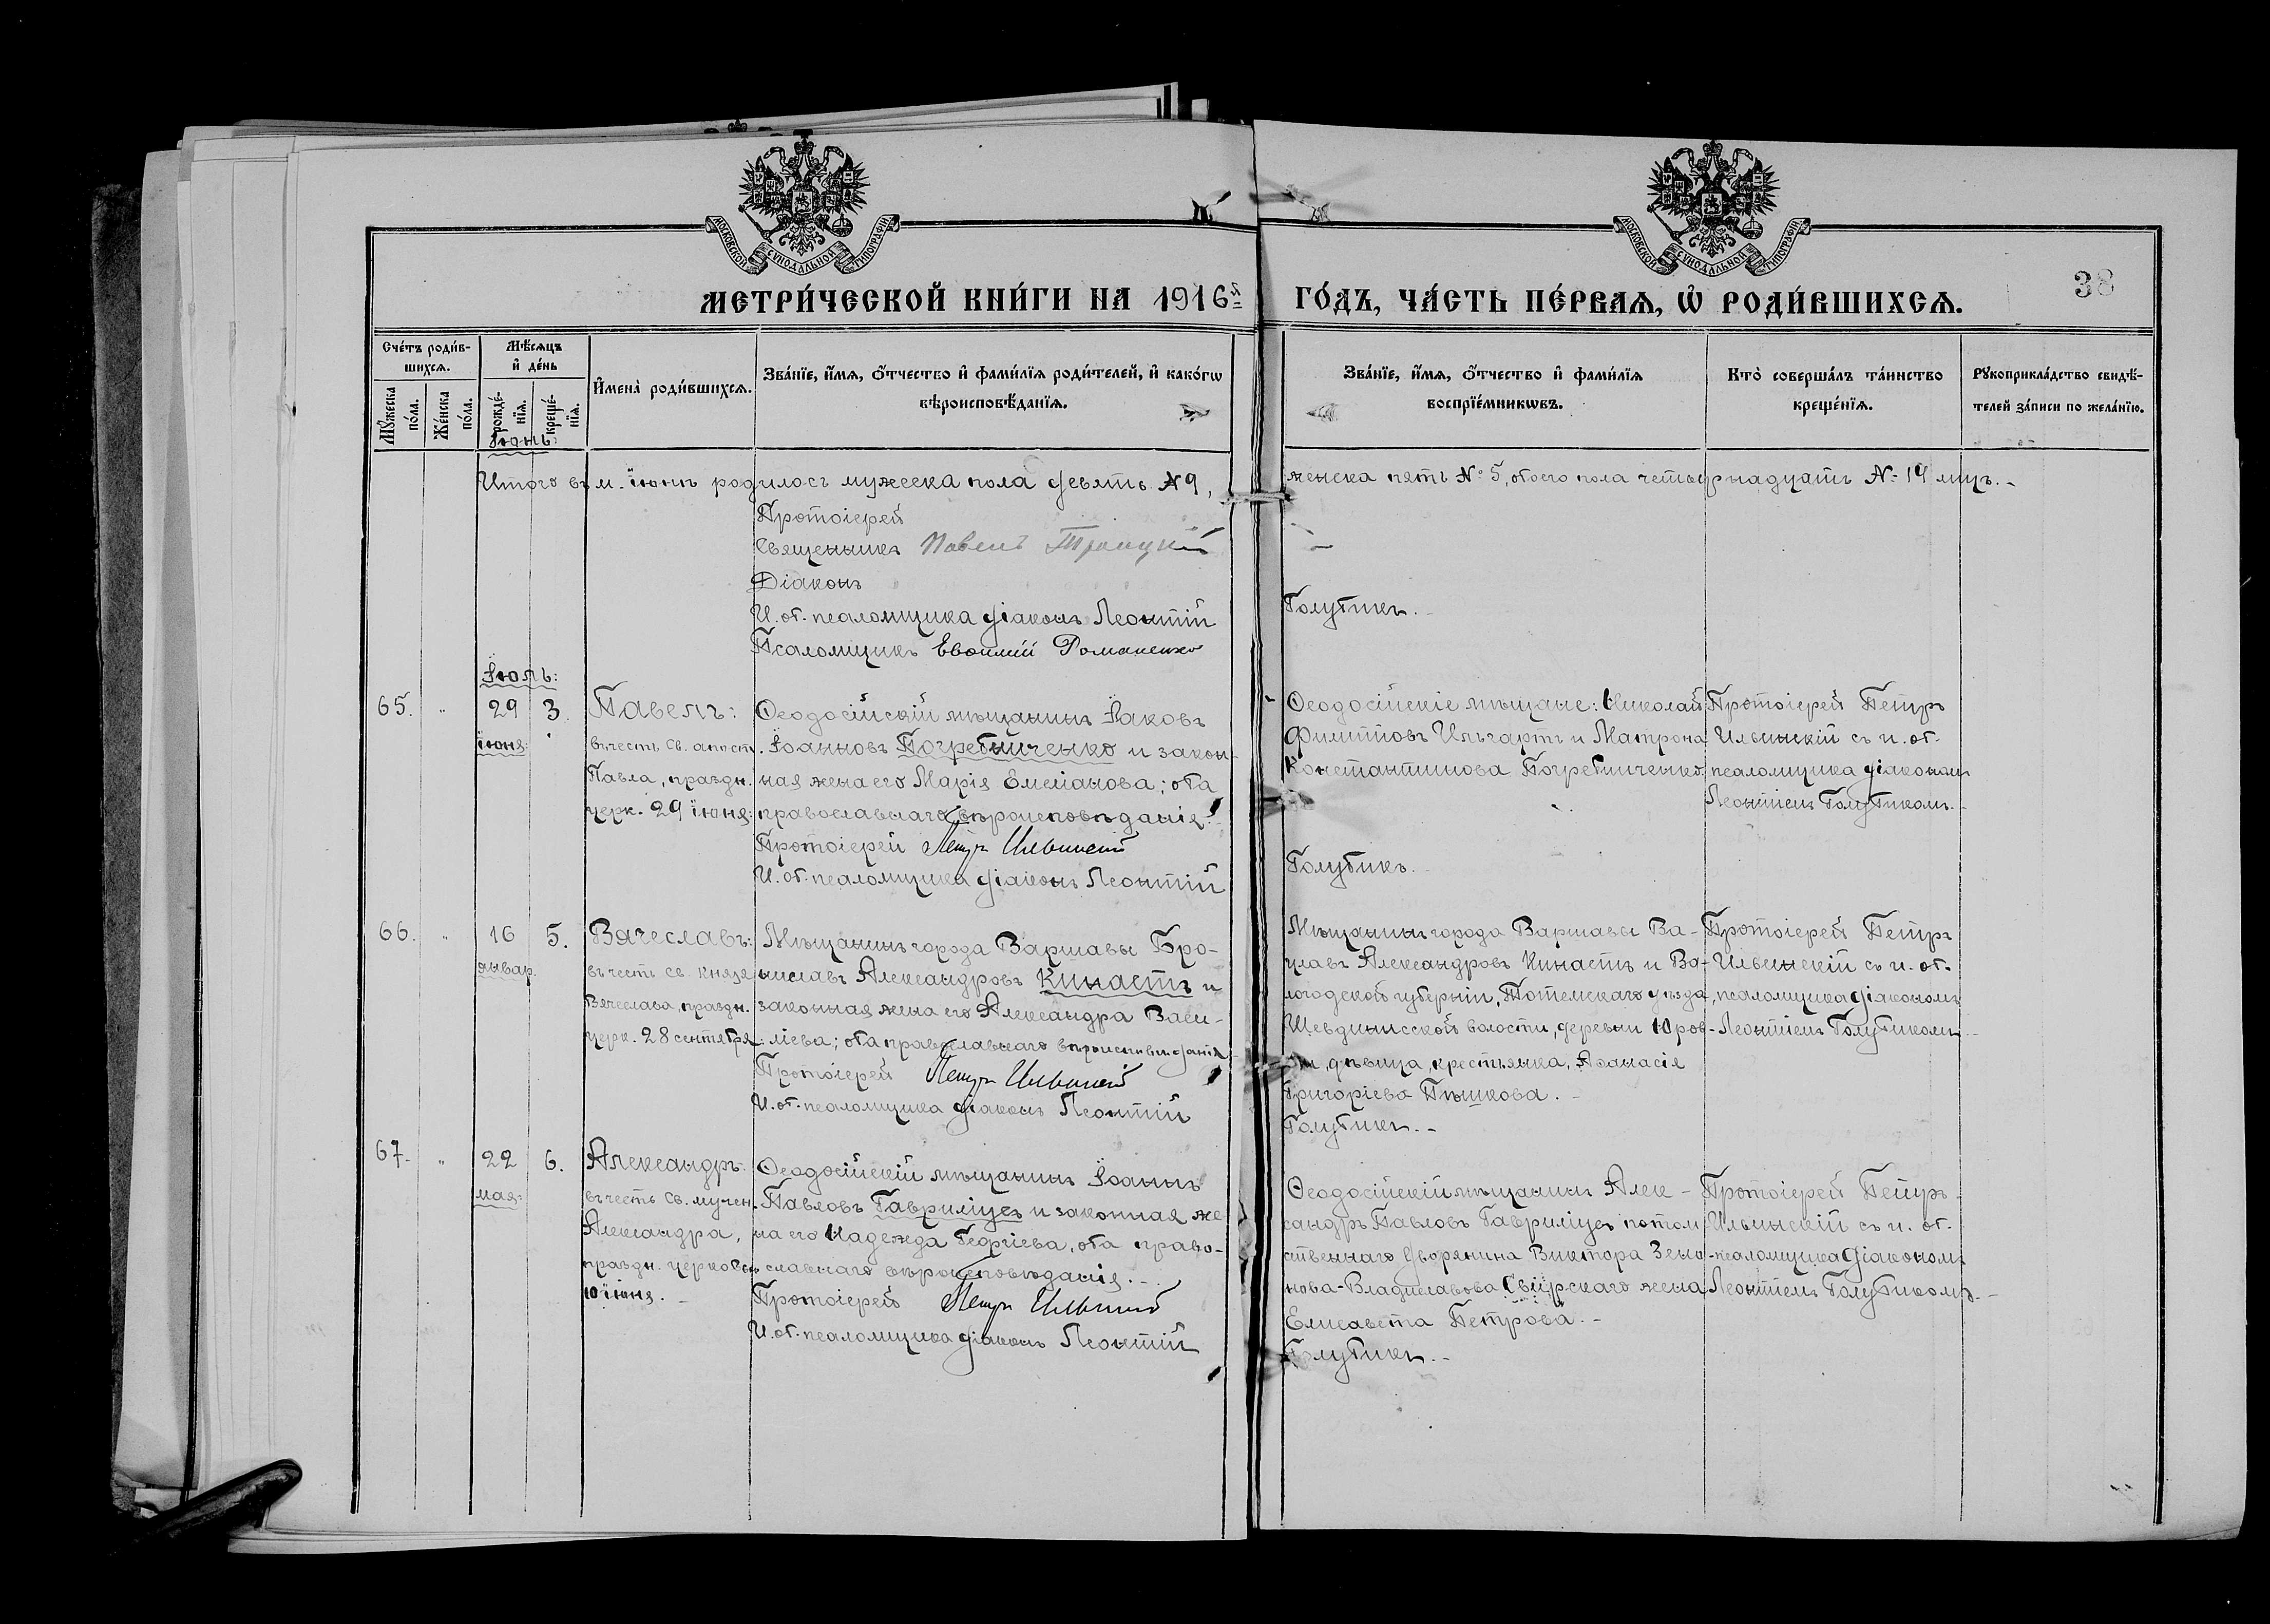 МОСКОВСКОЙ СУНОДАЛЬНОЙ ТИПОГРАФІИ
МОСКОВСКОЙ СУНОДАЛЬНОЙ ТИПОГРАФІИ
МЕТРИ́ЧЕСКОЙ КНИ́ГИ НА 1916й ГО́ДЪ, ЧА́СТЬ ПЕ́РВАѦ, Ѡ҆ РОДИ́ВШИХСѦ.
38
Сче́тъ роди́в-
шихсѧ.
Мѣ́сѧцъ
и҆ де́нь
Мꙋ́жеска по́ла.
Же́нска по́ла.
рожде́-нїѧ.
креще́-нїѧ.
И҆мена̀ роди́вшихсѧ.
Зва́нїе, и҆́мѧ, ѻ҆́тчество и҆ фами́лїѧ роди́телей, и҆ како́гѡ
вѣроисповѣ́данїѧ.
Зва́нїе, и҆́мѧ, ѻ҆́тчество и҆ фами́лїѧ
воспрїе́мникѡвъ.
Кто̀ соверша́лъ та́инство
креще́нїѧ.
Рꙋкоприкла́дство свидѣ́-
телей за́писи по жела́нїю.
Іюнь:
Итого въ м. іюнѣ родилось мужеска пола девять №9, женска пять №5, обоего пола четырнадцать №14 муж.-
Протоіерей
Священникъ Павелъ Троицкій
Діаконъ
И. об. псаломщика діаконъ Леонтій Голубикъ.-
Псаломщикъ Евѳимій Романенко
Іюль:
65. " 29 3. Павелъ:
іюня:
въ честь Св. апост.
Павла, праздн.
церк. 29 іюня:
Ѳеодосійскій мѣщанинъ Іаковъ
Іоанновъ Погребниченко и закон-
ная жена его Марія Емеліанова; оба
православнаго вѣроисповѣданія.
Протоіерей Петръ Ильинскій
И. об. псаломщика діаконъ Леонтій Голубикъ.
Ѳеодосійскіе мѣщане: Николай
Филипповъ и Матрона
Константинова Погребниченко.
Протоіерей Петръ
Ильинскій съ и. об.
псаломщика діакономъ
Леонтіемъ Голубикомъ.-
66. " 16 5. Вячеславъ:
январ.
въ честь св. князя
Вячеслава, праздн.
церк. 28 сентября:
Мѣщанинъ города Варшавы Бро-
ниславъ Александровъ Кинастъ и
законная жена его Александра Васи-
ліева; оба православнаго вѣроисповѣданія
Протоіерей Петръ Ильинскій
И. об. псаломщика діаконъ Леонтій
Мѣщанинъ города Варшавы Ва-
цлавъ Александровъ Кинастъ и Во-
логодской губерніи, Тотемскаго уѣзда,
волости, деревни
дѣвица, крестьянка, Аѳанасія
Григоріева Пѣшкова.-
Голубикъ.-
Протоіерей Петръ
Ильинскій съ и. об.
псаломщика діакономъ
Леонтіемъ Голубикомъ.-
67. " 22 6. Александръ:
мая:
въ честь Св. мучен.
Александра,
праздн. церковью
10 іюня.-
Ѳеодосійскій мѣщанинъ Іоаннъ
Павловъ Гавриліцъ и законная же
на его Надежда Георгіева, оба право-
славнаго вѣроисповѣданія.-
Протоіерей Петръ Ильинскій
И. об. псаломщика діаконъ Леонтій
Ѳеодосійскій мѣщанинъ Алек-
сандръ Павловъ Гавриліцъ потом
ственнаго дворянина Виктора Зено-
нова-Владиславова Свірскаго жена
Елисавета Петрова.-
Голубикъ.-
Протоіерей Петръ
Ильинскій съ и. об.
псаломщика діакономъ
Леонтіемъ Голубикомъ.-